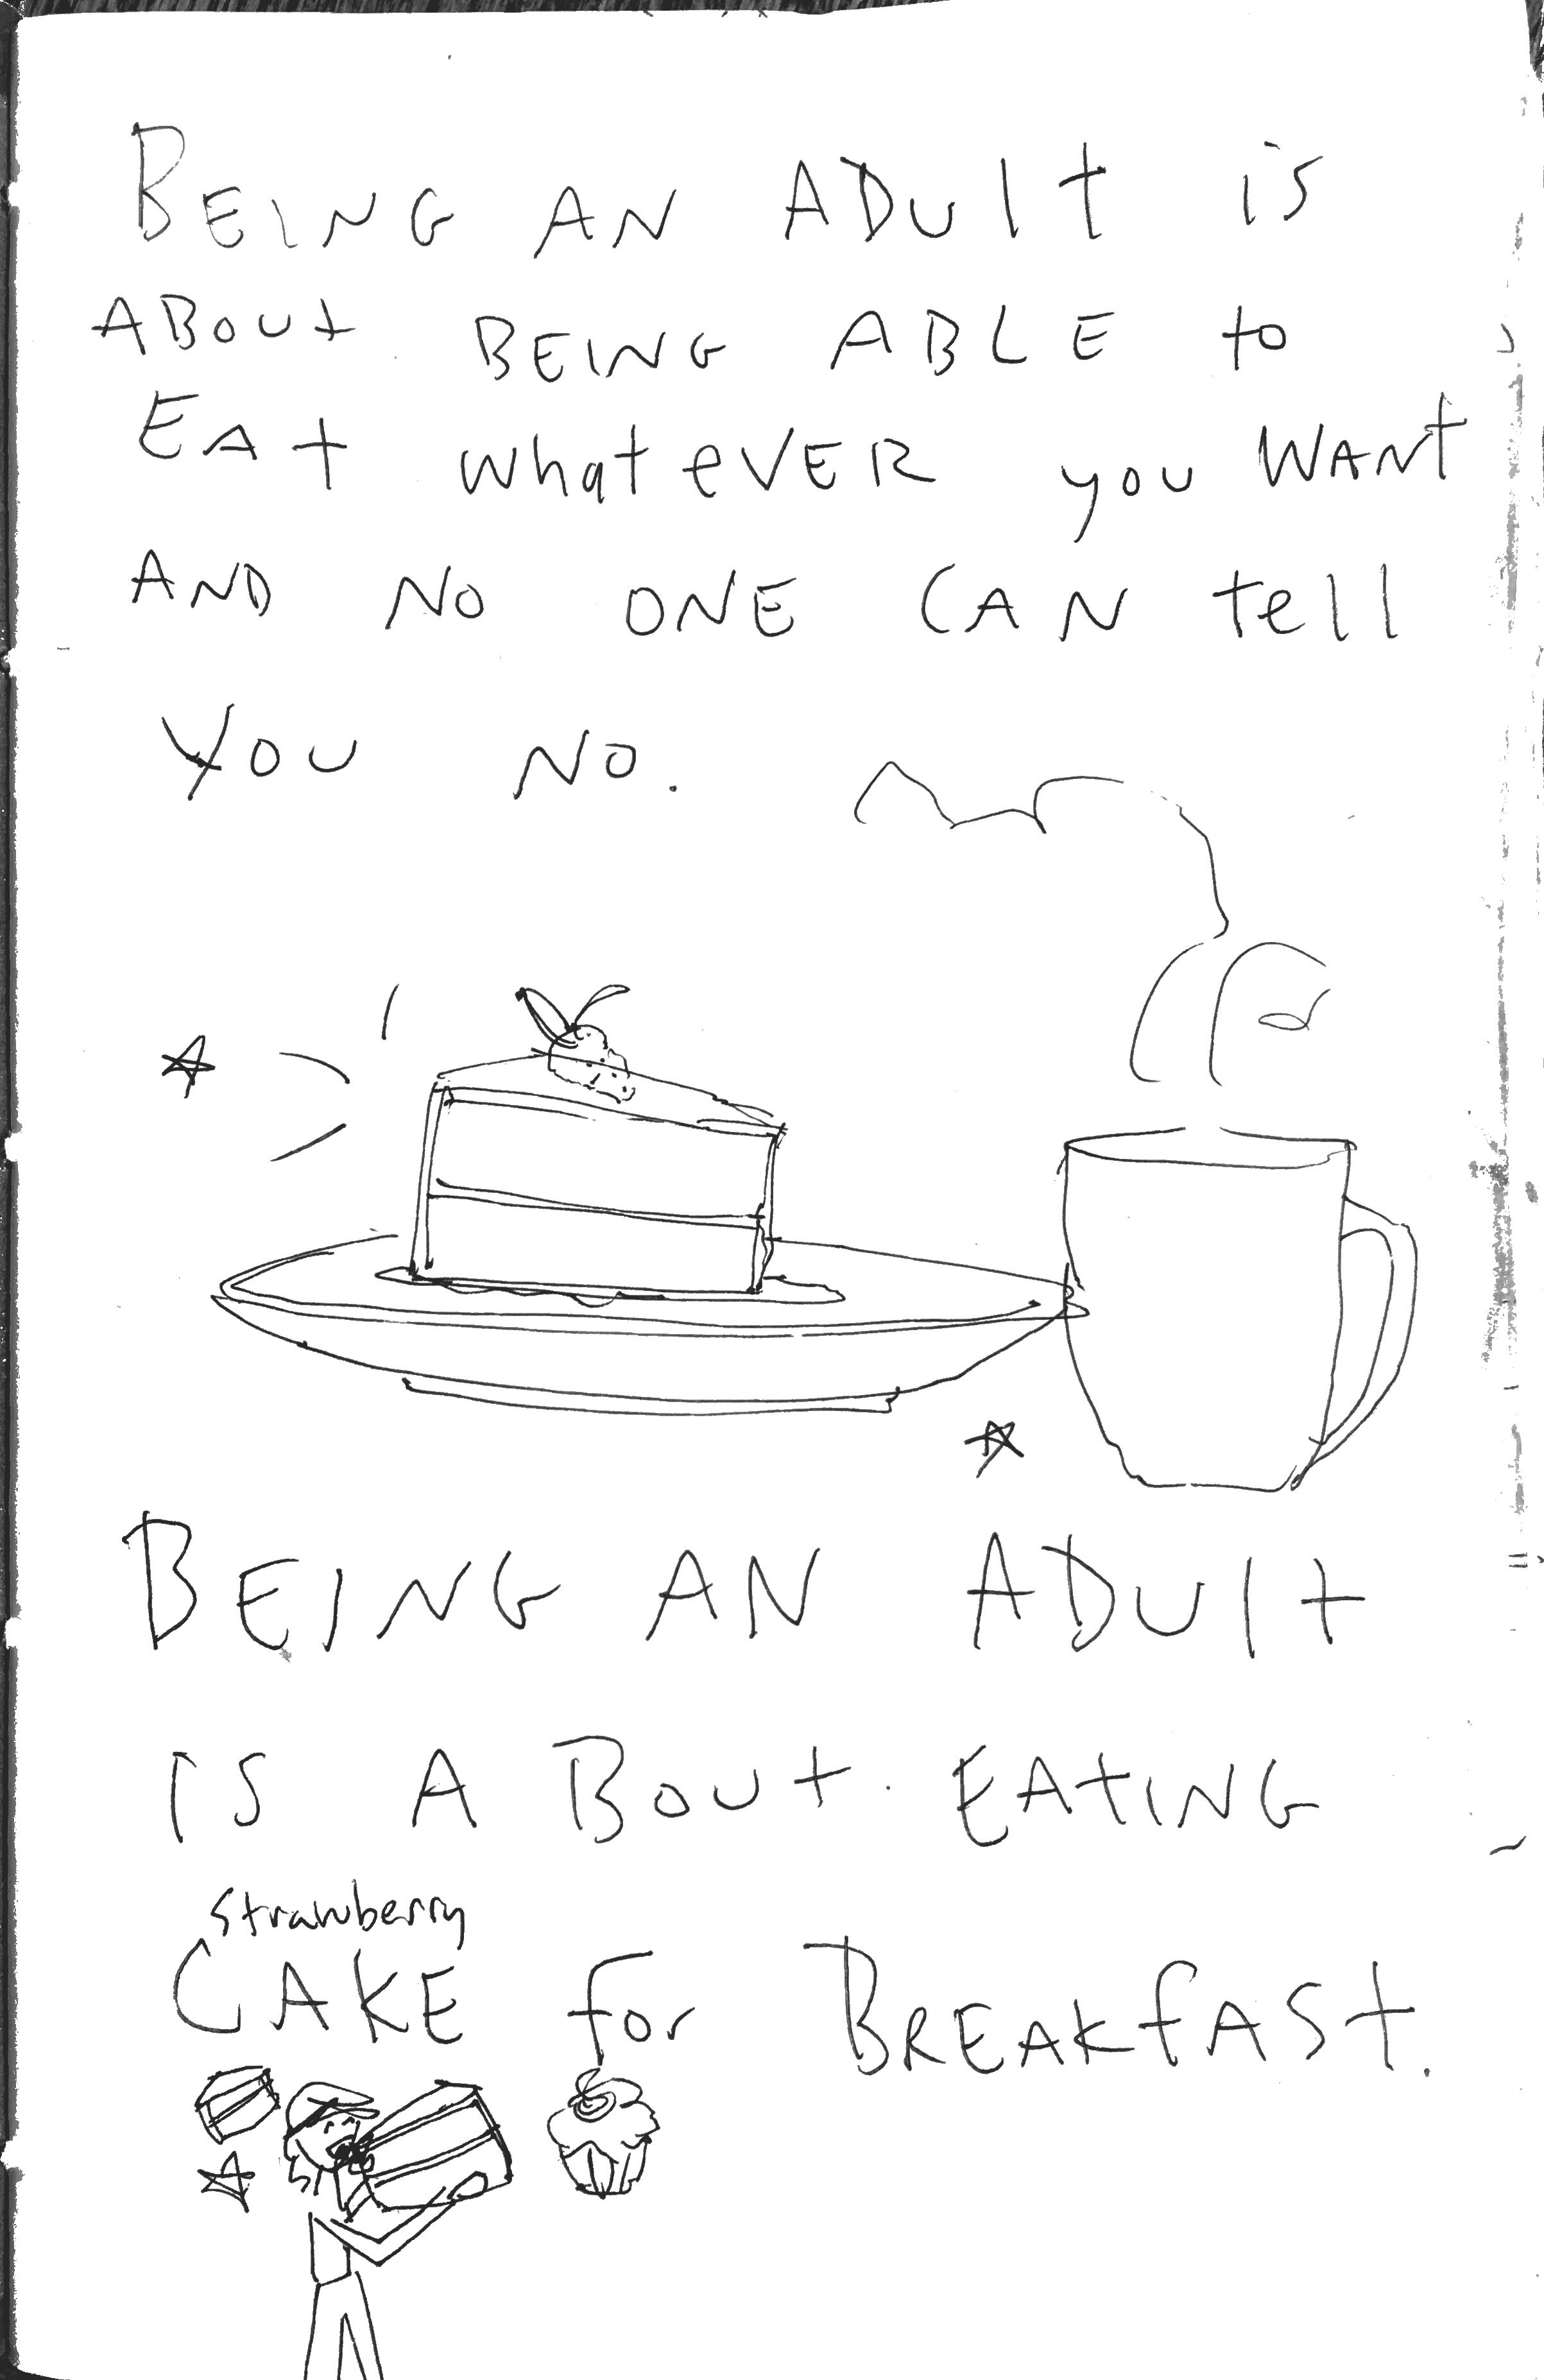 BEING AN ADULT is
ABOUT BEING ABLE to
EAT whatEVER you WANT
AND NO ONE CAN tell
YOU NO.
BEING AN ADULT
IS A BOUT EATING
strawberry
CAKE for BREAKFAST.